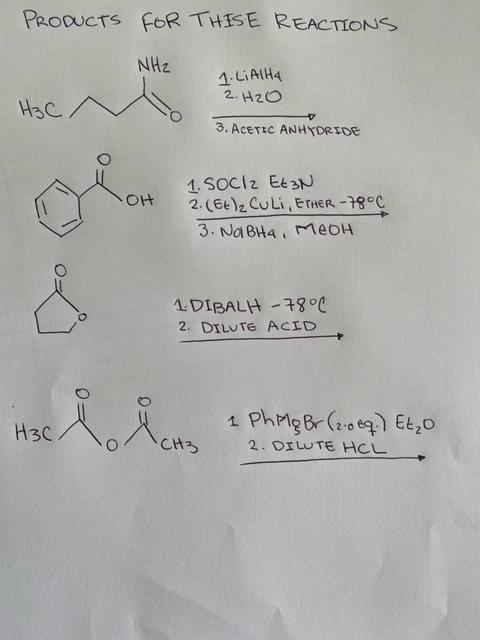 PRODUCTS FOR THISE REACTIONS
NH2
1. LiAlH4
2. H2O
H3C
O
3. ACETIC ANHYDRIDE
O
OH
1. SOCl2 Et3N
2. (Et)2CuLi, ETHER -78°C
3. NaBH4, MeOH
O
O
1. DIBALH -78°C
2. DILUTE ACID
O
O
H3C
O
CH3
1 PhMgBr (2.0 eq.) Et2O
2. DILUTE HCL